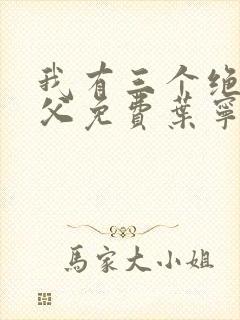 我有三个绝
父免费葉寧
馬家大小姐